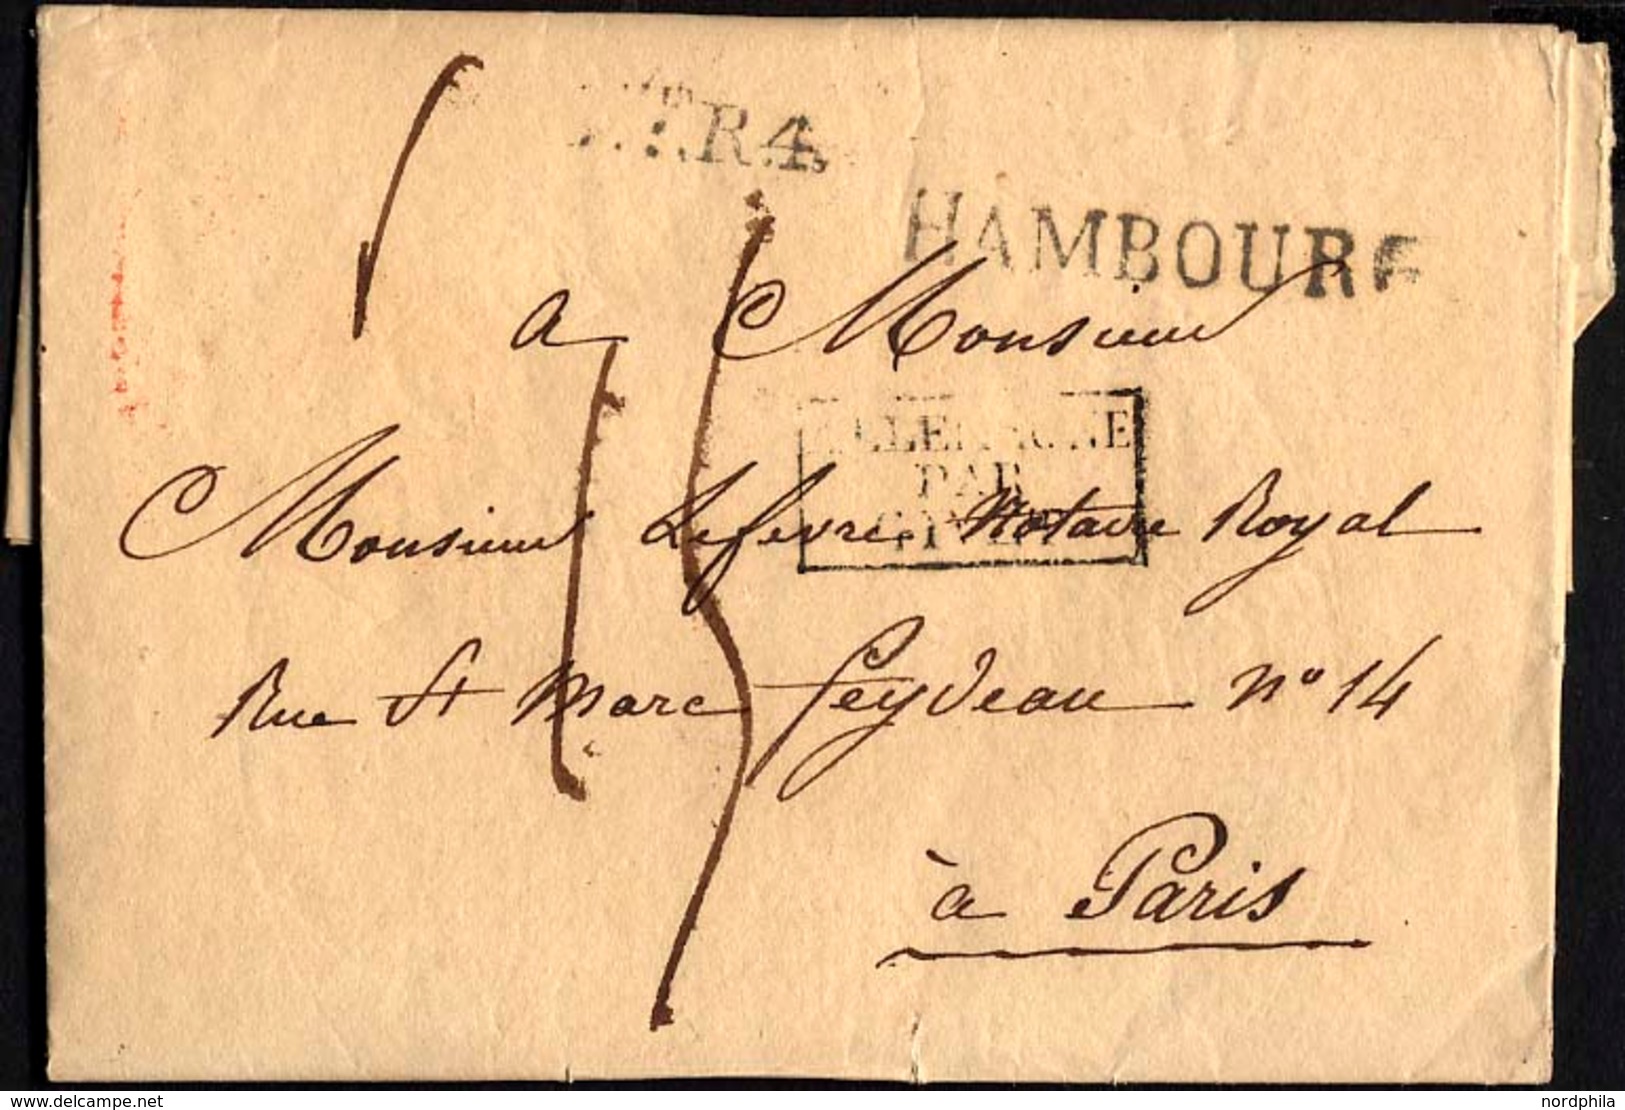 R.4.
HAMBOURG
a Monsieur
ALLEMAGNE
PAR
Monsieur Lefevre Notaire Royal
Rue St Marc Feydeau N° 14
à Paris
www.delcampe.net
nordphila